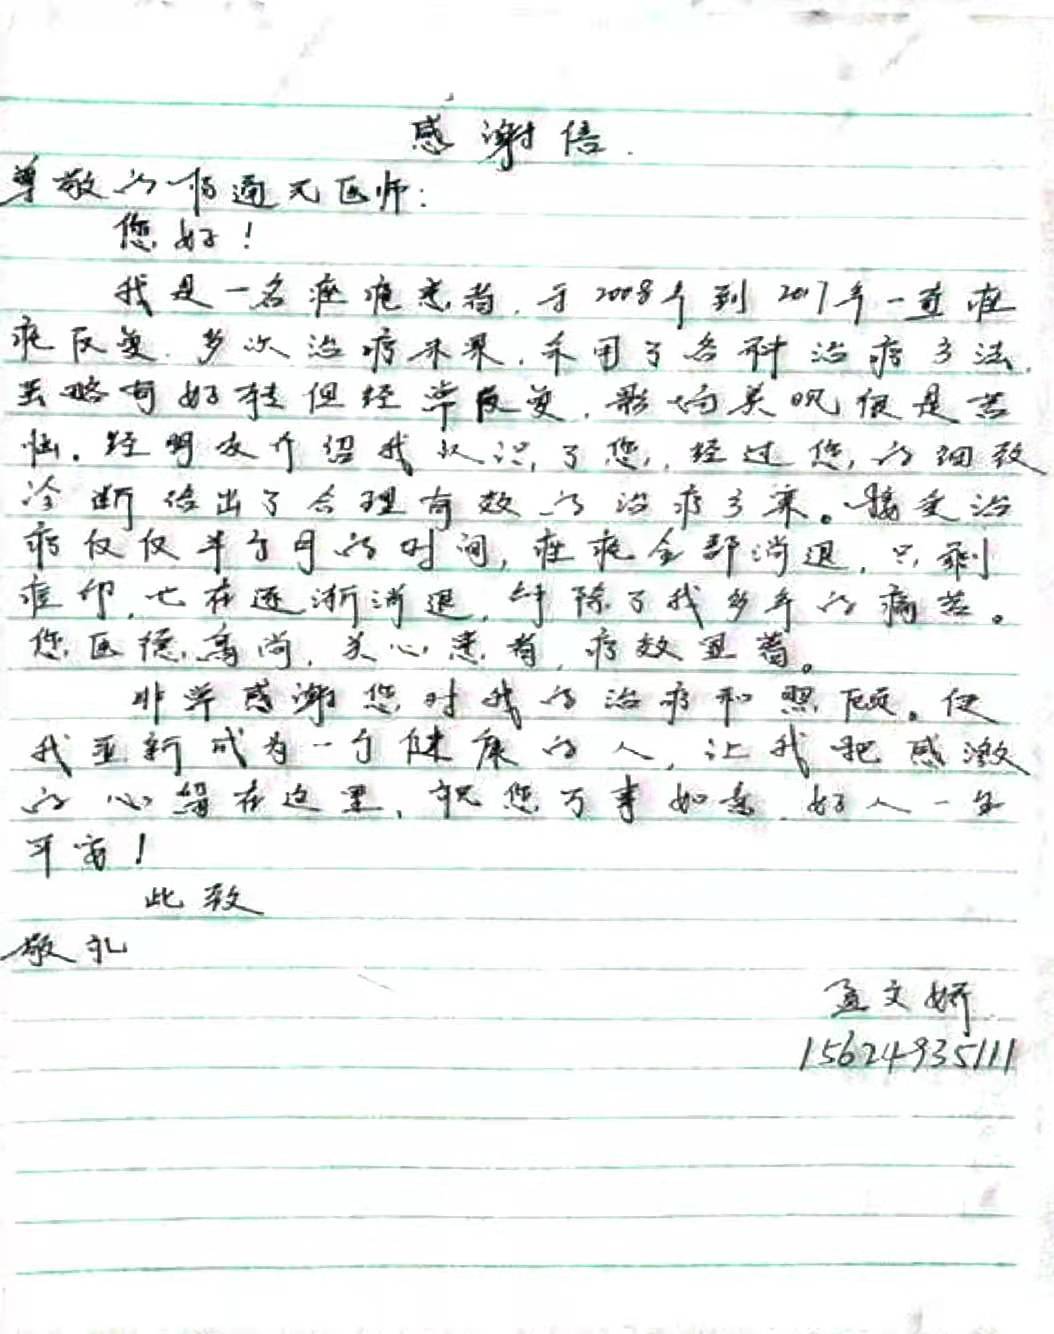 感谢信
尊敬的 通元医师:
您好!
我是一名痤疮患者,于2008年到2017年一直痤
疮反复.多次治疗未果,采用了各种治疗方法,
虽略有好转但经常反复,影响美观很是苦
恼。经朋友介绍我认识了您,经过您的细致
诊断给出了合理有效的治疗方案。接受治
疗仅仅半个月的时间,痤疮全部消退,只剩
痘印,也在逐渐消退,解除了我多年的痛苦。
您医德高尚,关心患者,疗效显著。
非常感谢您对我的治疗和照顾。使
我重新成为一个健康的人,让我把感激
的心留在这里,祝您万事如意,好人一生
平安!
此致
敬礼
孟文妍
15624935111